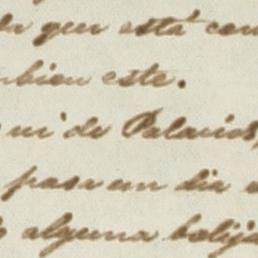 que está con
bien este.
ni de Palacios,
pasa un dia
alguna balija